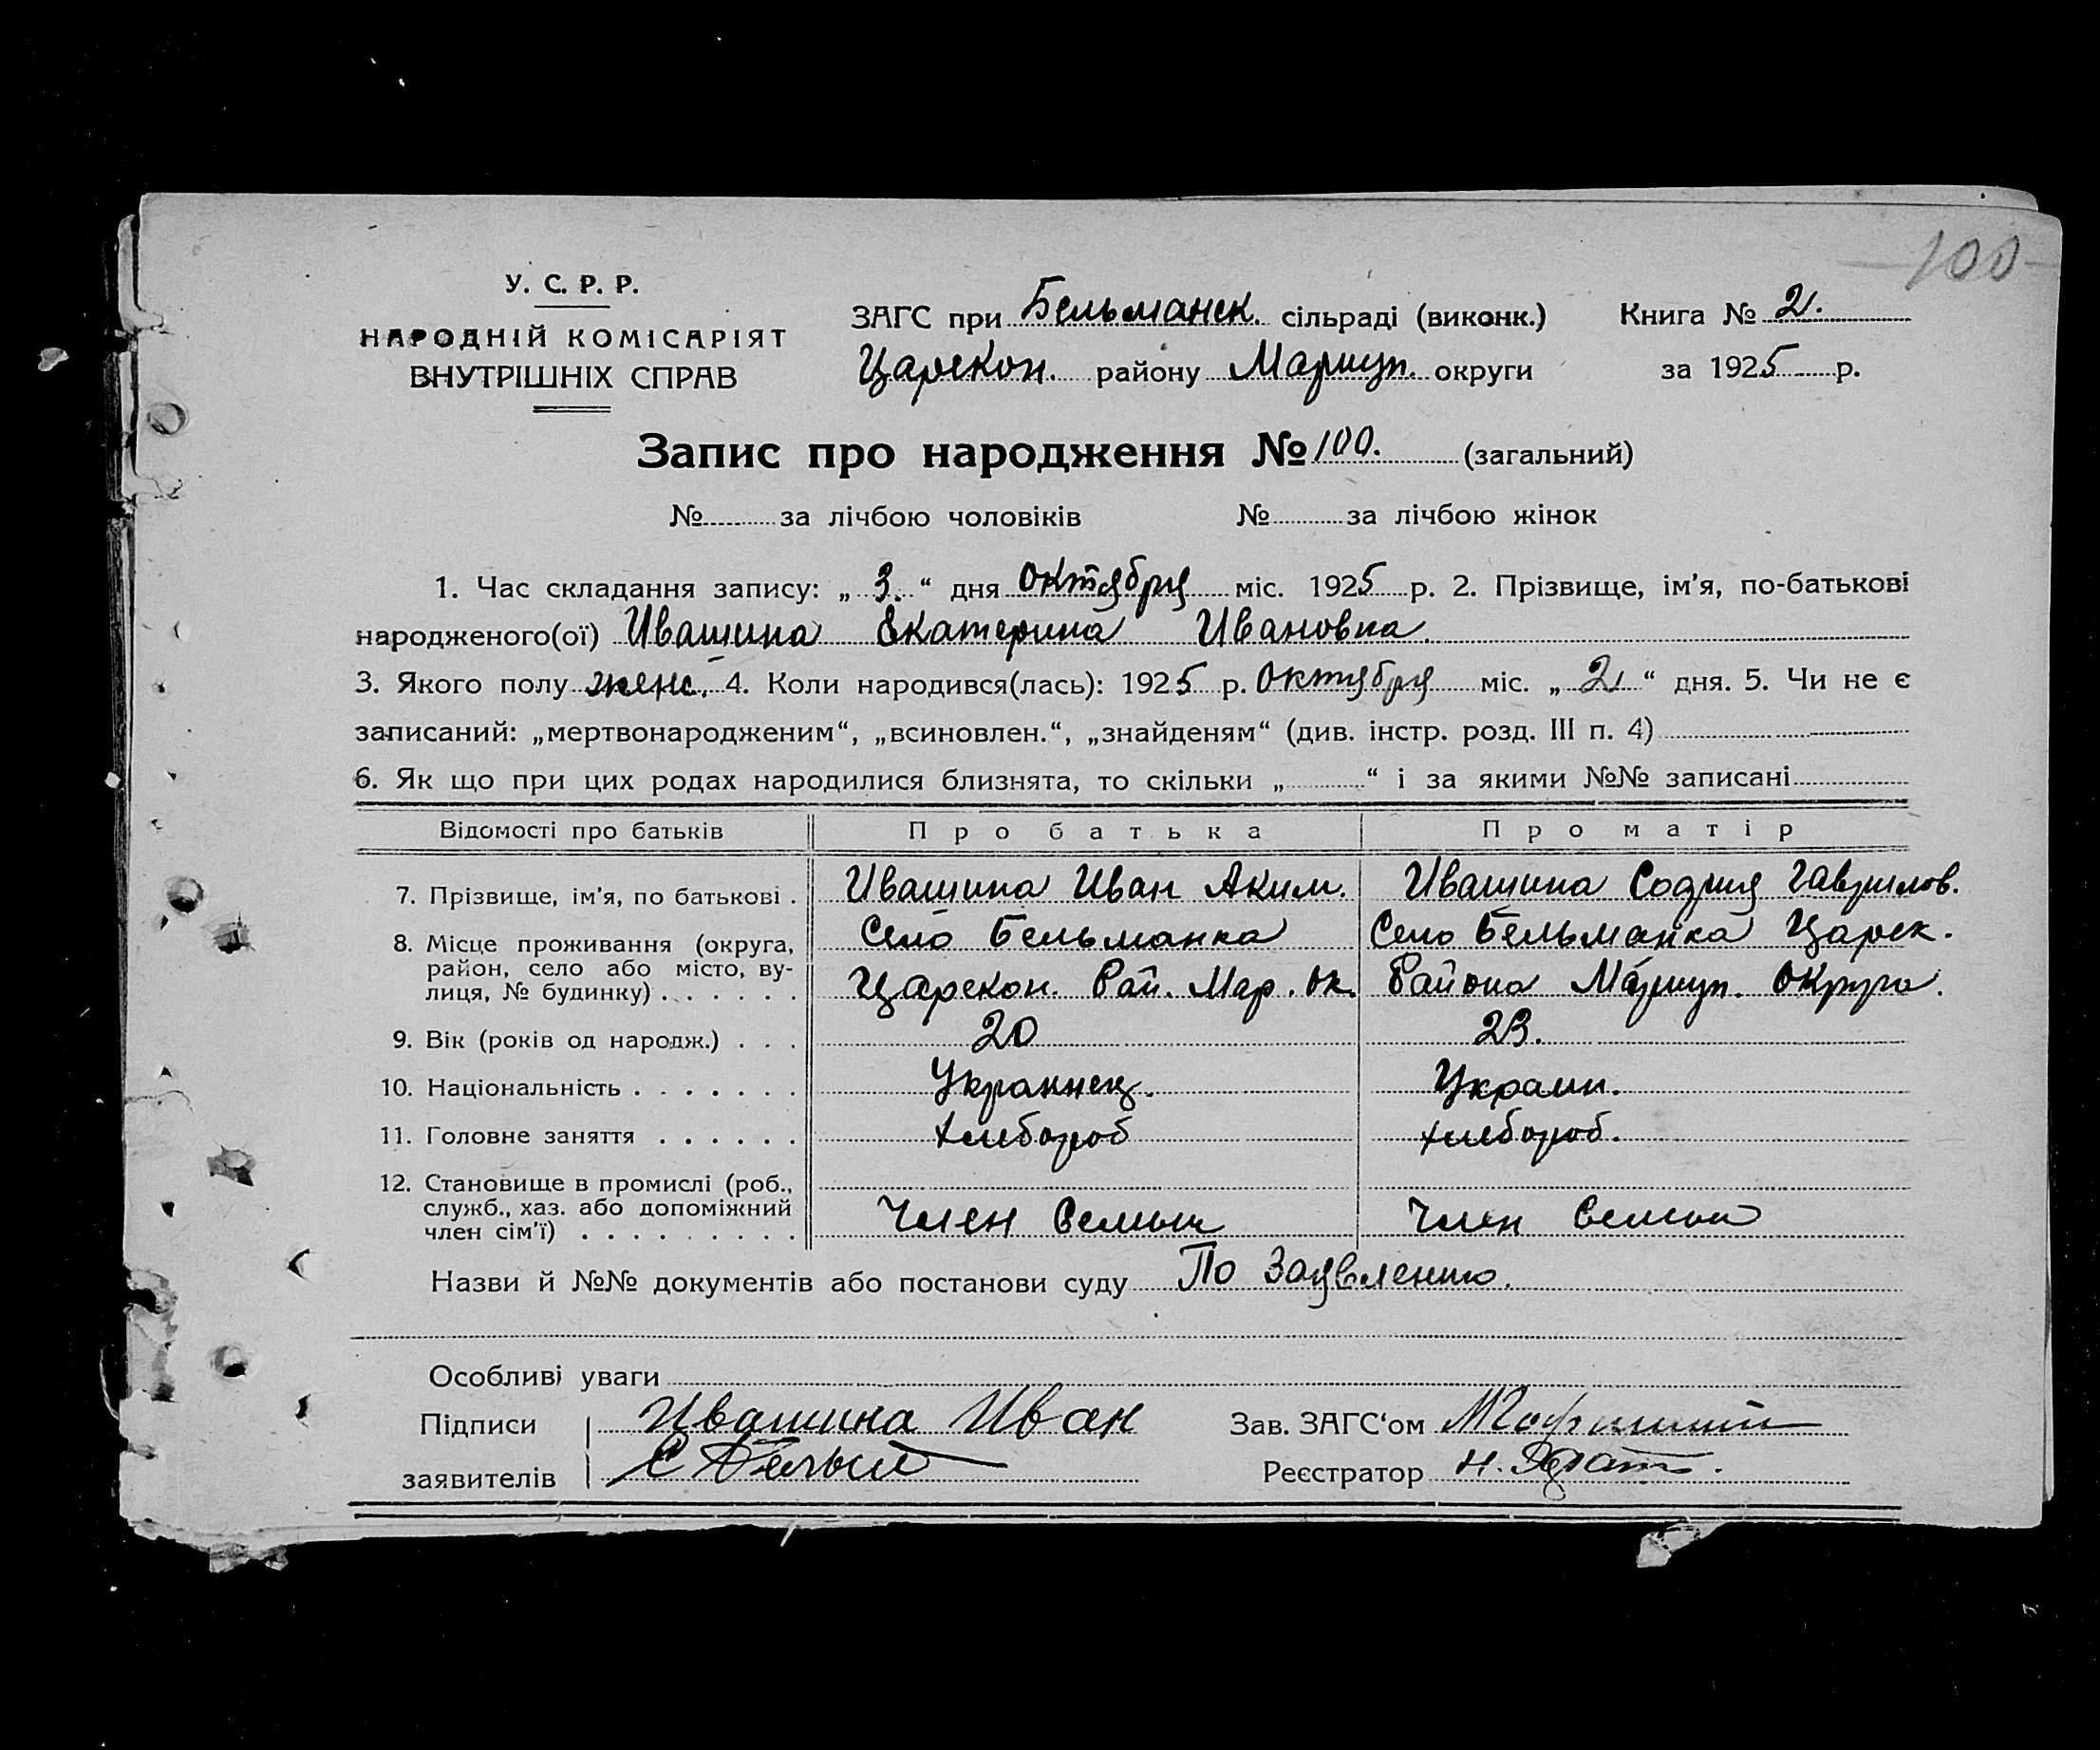 100
У. С. Р. Р.
НАРОДНІЙ КОМІСАРІЯТ
ВНУТРІШНІХ СПРАВ
ЗАГС при Бельманск. сільраді (виконк.)
Царекон. району Мариуп. округи
Книга № 2.
за 1925 р.
Запис про народження № 100. (загальний)
№ за лічбою чоловіків № за лічбою жінок
1. Час складання запису: „ 3. “ дня Октября міс. 1925 р. 2. Прізвище, ім'я, по-батькові
народженого(ої) Ивашина Екатерина Ивановна.
3. Якого полу женс. 4. Коли народився(лась): 1925 р. Октября міс. „ 2 “ дня. 5. Чи не є
записаний: „мертвонародженим“, „всиновлен.“, „знайденям“ (див. інстр. розд. III п. 4)
6. Як що при цих родах народилися близнята, то скільки „ “ і за якими №№ записані
Відомості про батьків Про батька Про матір
7. Прізвище, ім'я, по батькові . Ивашина Иван Аким. Ивашина София Гаврилов.
8. Місце проживання (округа, Село Бельманка Село Бельманка Царек.
район, село або місто, ву-
лиця, № будинку) . . . . . . Царекон. Рай. Мар. Ок. Района Мариуп. Округа.
9. Вік (років од народж.) . . . 20 23.
10. Національність . . . . . . . Украинец. Украин.
11. Головне заняття . . . . . . хлебороб хлебороб.
12. Становище в промислі (роб.,
служб., хаз. або допоміжний
член сім'ї) . . . . . . . . . Член Семьи Член Семьи
Назви й №№ документів або постанови суду По Заявлению.
Особливі уваги
Підписи Ивашина Иван Зав. ЗАГС'ом
заявителів С Белый Реєстратор Н.